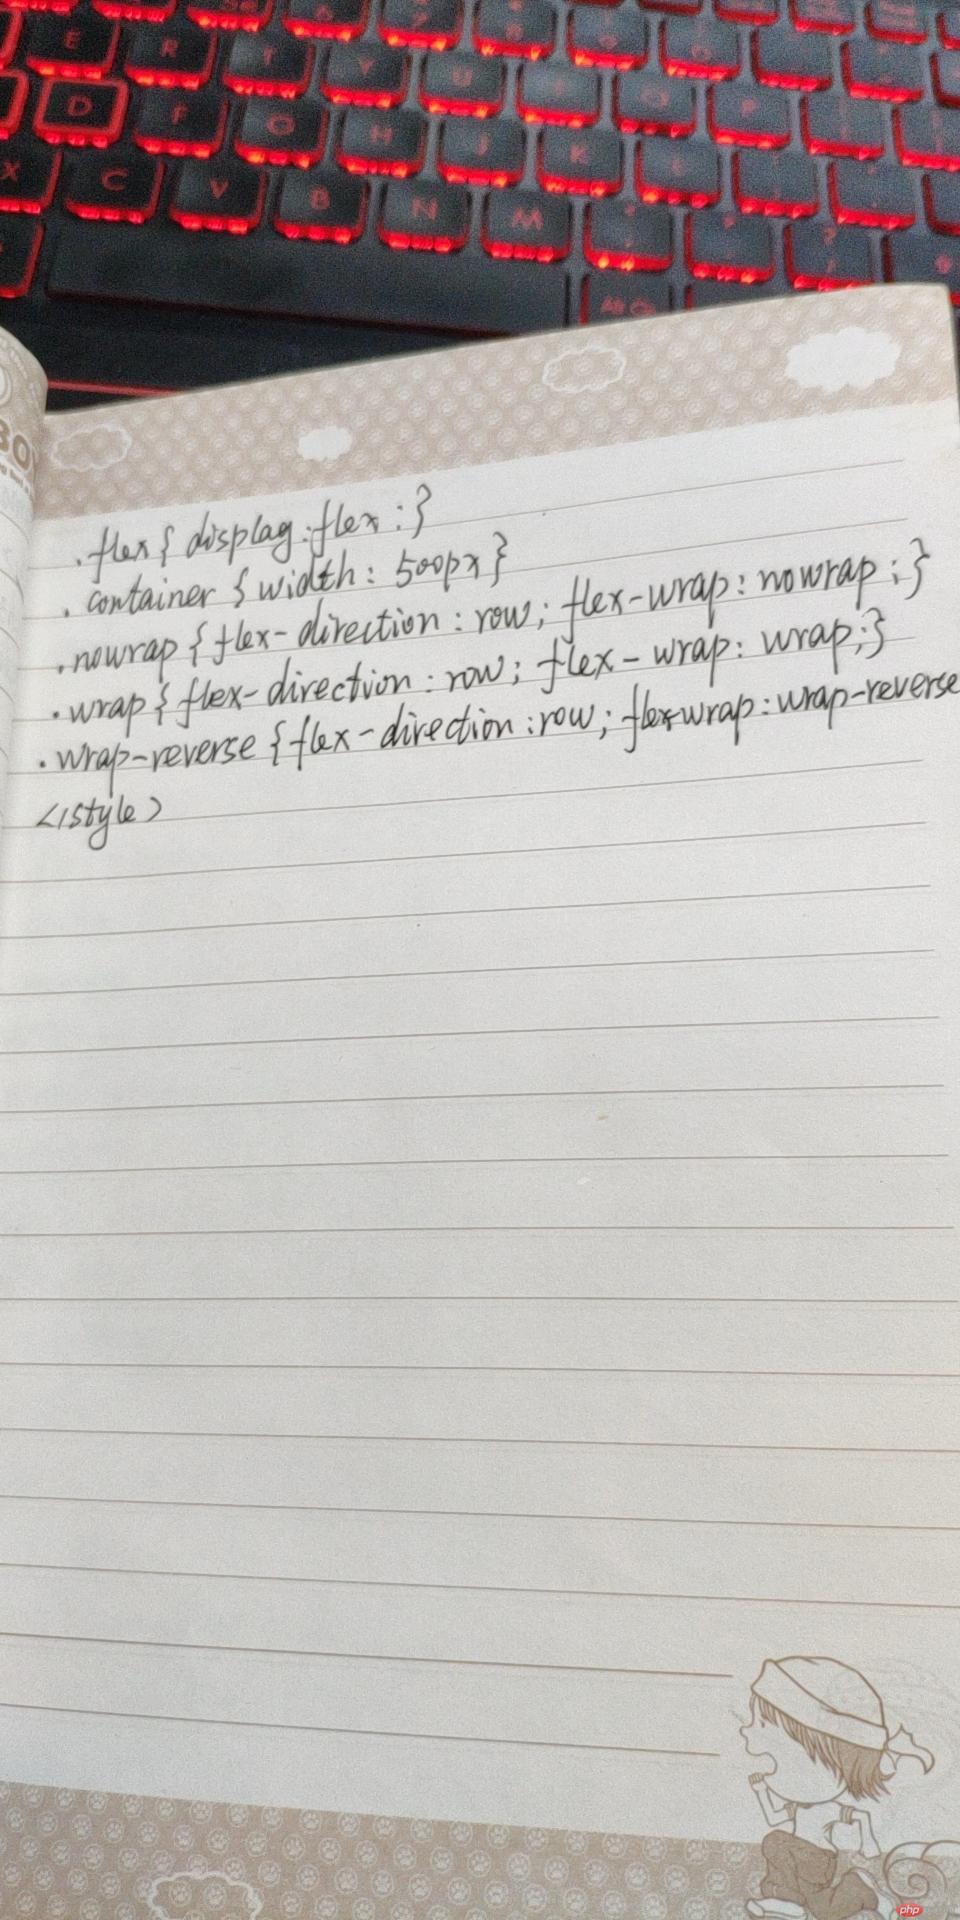 E R T Y U I O P
D F G H J K L
X C V B N M
.flex{ display:flex:}
.container {width: 500px}
.nowrap {flex-direction: row; flex-wrap: nowrap;}
.wrap{ flex-direction: row; flex-wrap: wrap;}
.wrap-reverse {flex-direction:row; flex-wrap:wrap-reverse
</style>
php